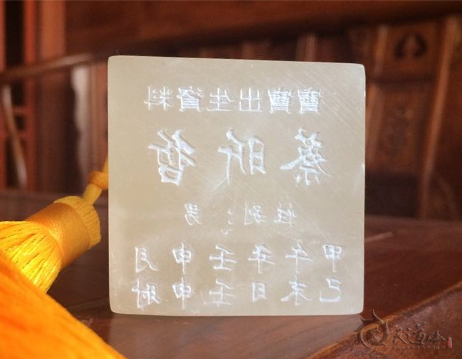 寶寶出生資料
蔡昕哲
性别：男
甲午年壬申月
己未日壬申时